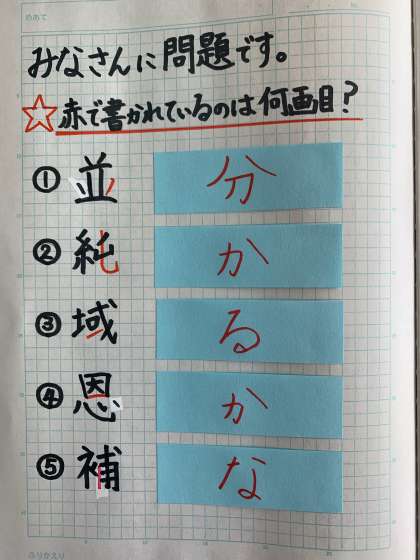 めあて
みなさんに問題です。
☆赤で書かれているのは何画目？
① 並 分
② 純 か
③ 域 る
④ 恩 か
⑤ 補 な
ふりかえり